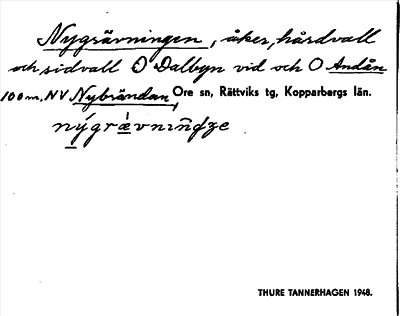 Nygrävningen, åker, hårdvall
och sidvall O Dalbyn vid och O Andån
100 m. NV Nybrändan, Ore sn, Rättviks tg, Kopparbergs län.
nýgrǟvnıŋ̄dze
THURE TANNERHAGEN 1948.